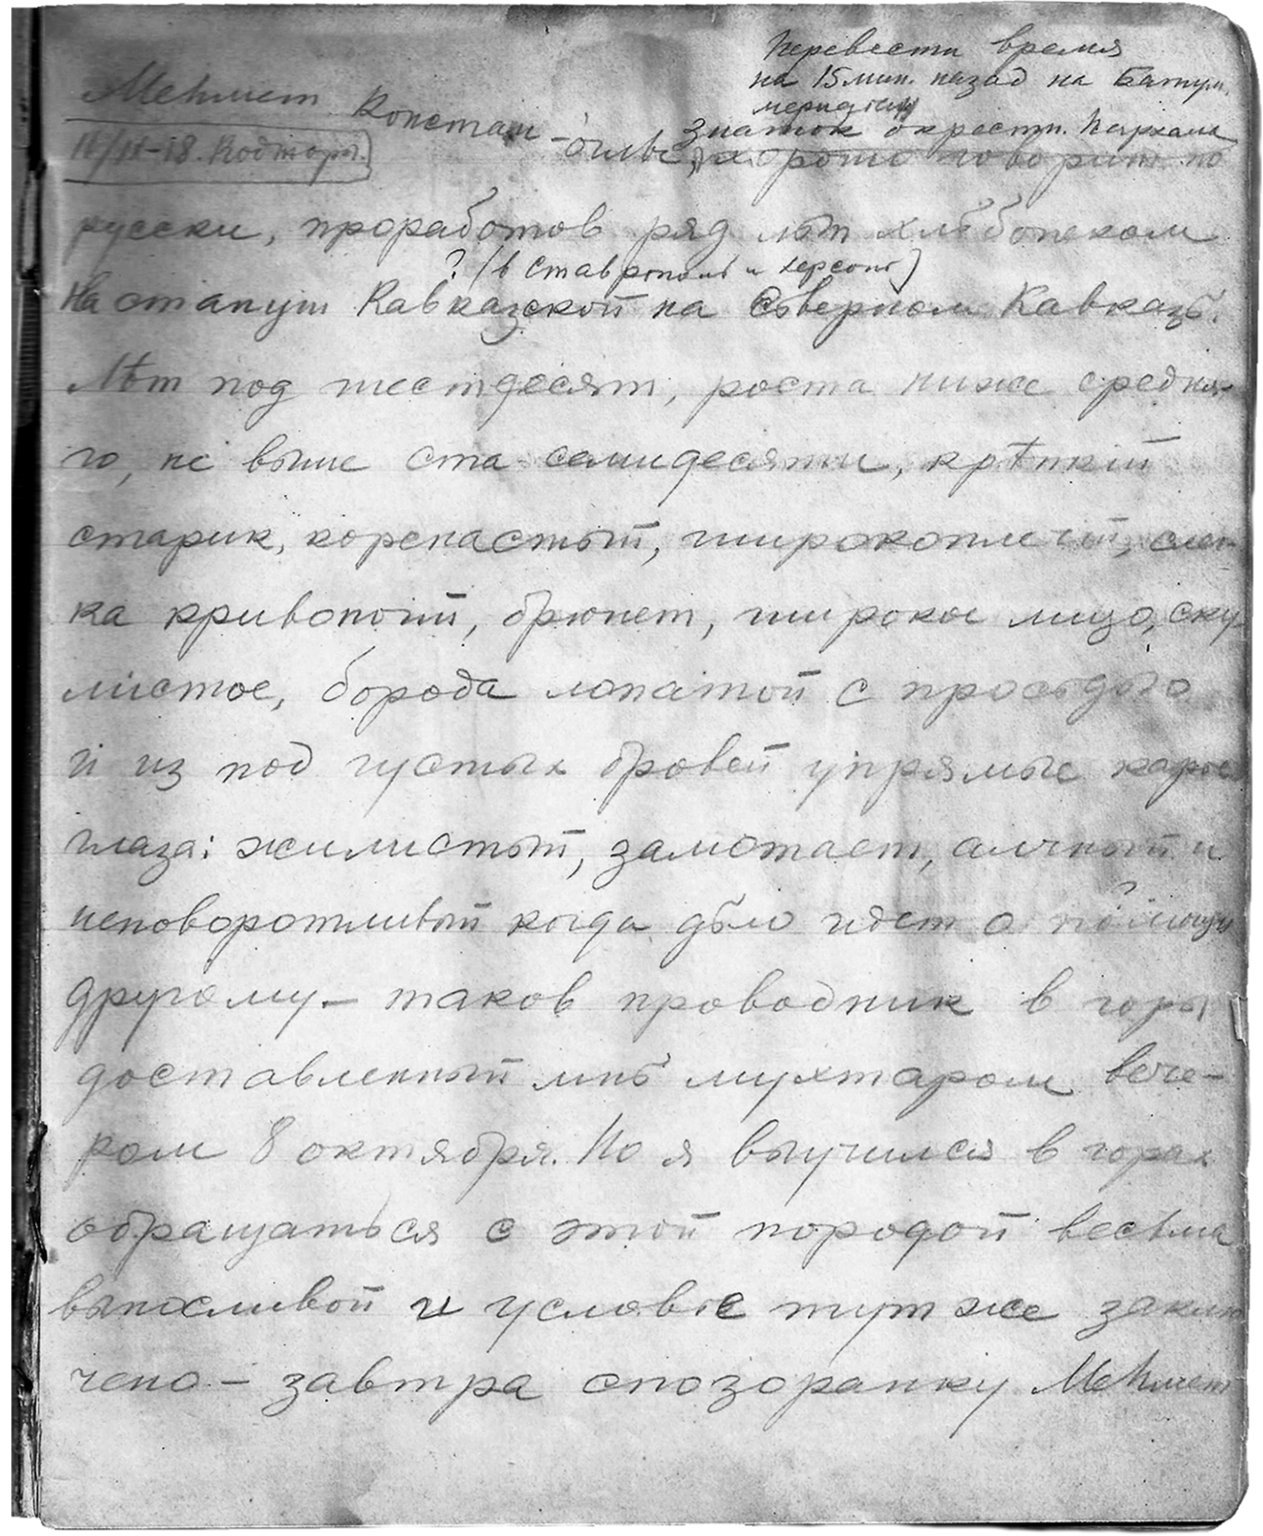 Перевести время
на 15 мин. назад на Батум.
меридиан
Меhмет Констан-оглы, знаток окрестн. Пархала
11/II-18. Коджоры.
хорошо говорит по
русски, проработав ряд лѣт хлѣбопеком
? (в Ставрополѣ и Херсонѣ)
на станции Кавказской на Сѣверном Кавказѣ.
Лѣт под шестдесят, роста ниже средня-
го, не выше ста семидесяти, крѣпкій
старик, коренастый, широкоплечій, слег-
ка кривоногій, брюнет, широкое лицо, ску-
листое, борода лопатой с просѣдью
и из под густых бровей упрямые карие
глаза: жилистый, замотает, алчный и
неповоротливый когда дѣло идет о помощи
другому – таков проводник в горы
доставленный мнѣ мухтаром вече-
ром 8 октября. Но я выучился в горах
обращаться с этой породой весьма
выносливой и условіе тут же заклю-
чено – завтра спозоранку Меhмет